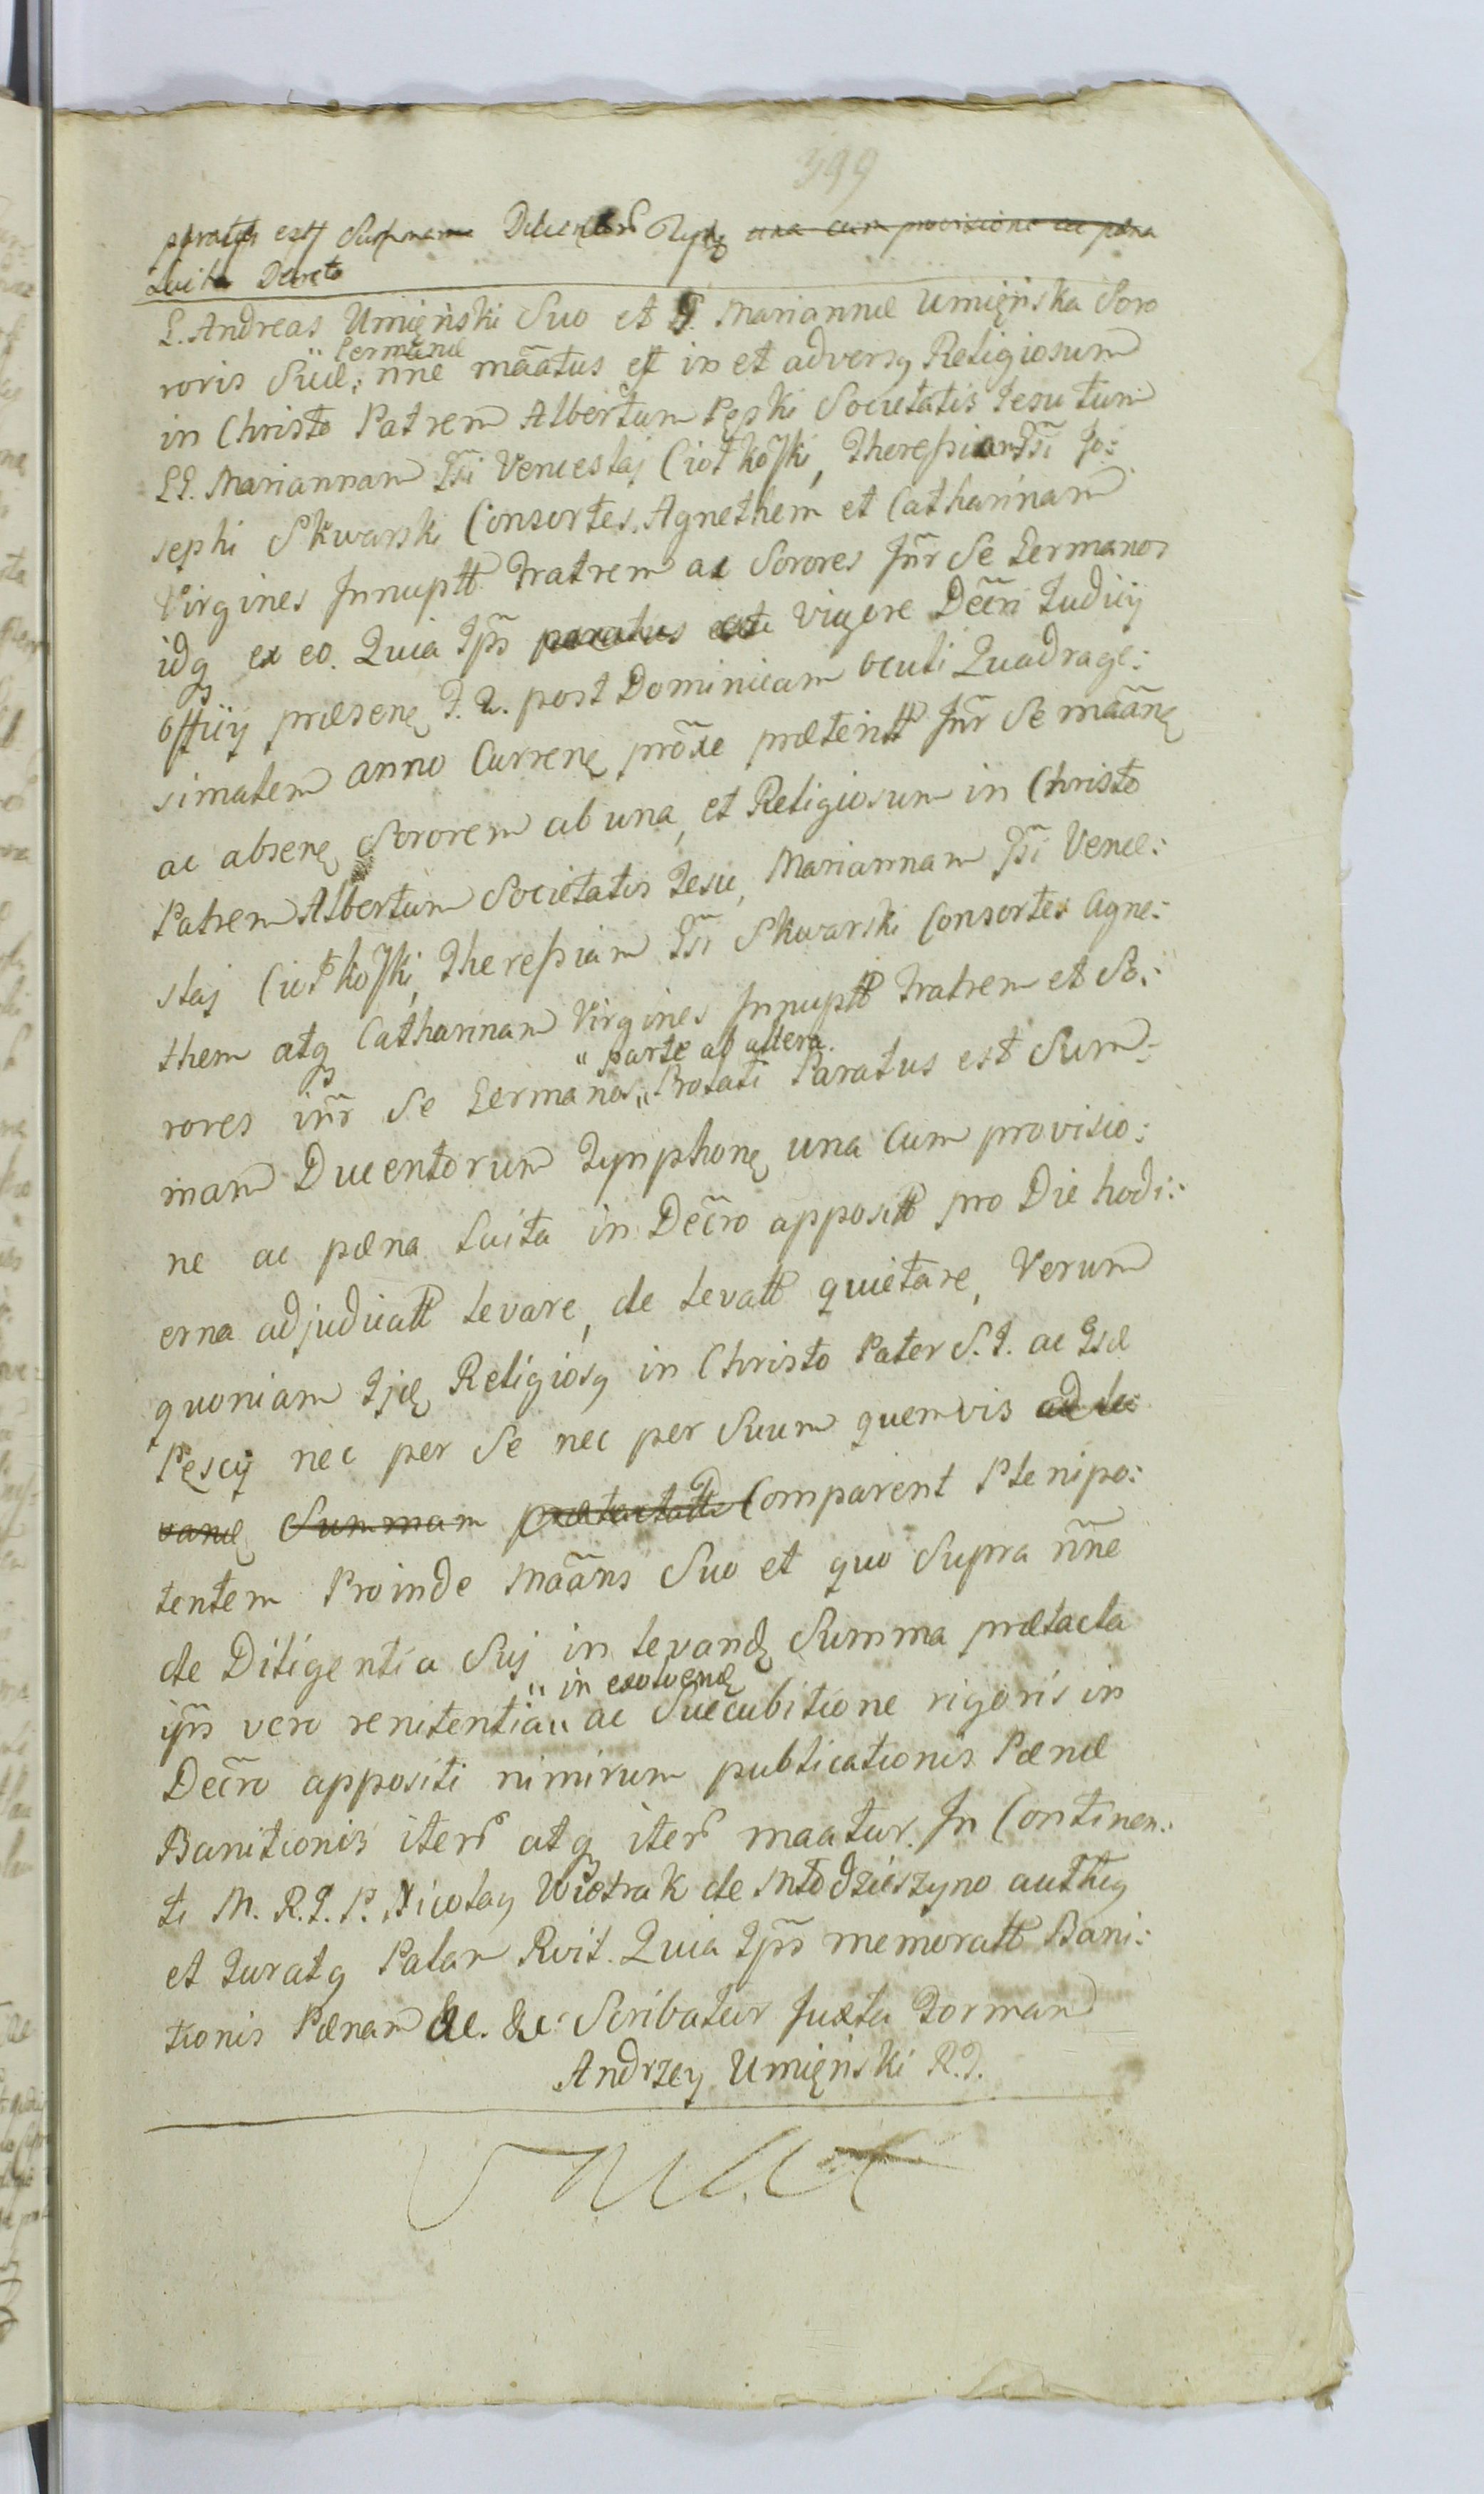 399
paratus est Summam Ducentor Tymph una cum provisione ac pæna
Luita Decreto
G. Andreas Umięński Suo et G. Mariannæ Umięńska Soro
roris Suæ Germanæ nñe mãatus est in et adversq Religiosum
in Christo Patrem Albertum Pęski Societatis Jesu tum
GG. Mariannam Gsi Venceslaj Ciołkoski, Theressiam Gsi Jo:
sephi Skwarski Consortes, Agnethem et Catharinam
Virgines Innuptt Fratrem ac Sorores Inr Se Germanos
idq ex eo. Quia Ips paratus est vigore Decri Judicij
officij præsenę F. 2. post Dominicam oculi Quadrage:
simalem anno Currenę prõxe præteritt Inr Se mããnę
ac absenę Sororem ab una, et Religiosum in Christo
Patrem Albertum Societatis Jesu, Mariannam Gsi Vence:
slaj Ciołkoski, Theressiam Gsi Skwarski Consortes Agne:
them atq Catharinam Virgines Innuptt Fratrem et So:
rores inr Se Germanos "parte ab altera" Prolati Paratus est Sum:
mam Ducentorum Tymphonę una Cum provisio:
ne ac pæna Luita in Decro appositt pro Die hodi:
erna adjudicatt levare, de levatt quietare, Verum
quoniam Ijdę Religiosq in Christo Pater S. J. ac Gsd
Pęscÿ nec per Se nec per Suum quemvis ad le:
vanę Summam prætactatt Comparent Plenipo:
tentem Proinde Mãans Suo et quo Supra nñe
de Diligentia Suj in levandę Summa prætacta
ips vero renitentia "in exolvenę" ac Succubitione rigoris in
Decro appositi nimirum publicationis Pænæ
Banitionis iterũ atq iterũ maatur. In Continen:
ti M. R. J. P. Nicolaq Wietrak de Młodzieszyno autheq
et Juratq Palam Rvit. Quia Ips memoratt Bani:
tionis Pænam &c. &c. Scribatur Juxta Formam
Andrzey Umięński R. J.